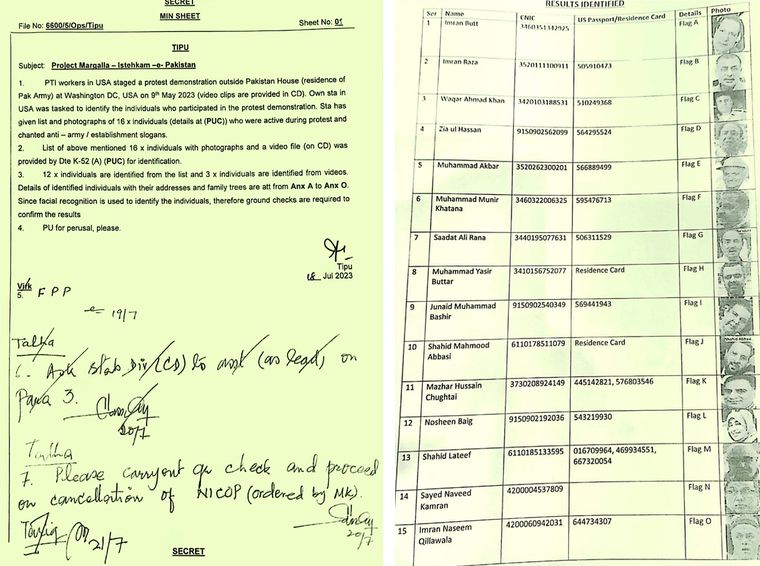 SECRET
MIN SHEET
File No: 6600/5/Ops/Tipu
Sheet No: 01
TIPU
Subject: Project Margalla – Istehkam –e- Pakistan
1. PTI workers in USA staged a protest demonstration outside Pakistan House (residence of
Pak Army) at Washington DC, USA on 9th May 2023 (video clips are provided in CD). Own sta in
USA was tasked to identify the individuals who participated in the protest demonstration. Sta has
given list and photographs of 16 x individuals (details at (PUC)) who were active during protest and
chanted anti – army / establishment slogans.
2. List of above mentioned 16 x individuals with photographs and a video file (on CD) was
provided by Dte K-52 (A) (PUC) for identification.
3. 12 x individuals are identified from the list and 3 x individuals are identified from videos.
Details of identified individuals with their addresses and family trees are att from Anx A to Anx O.
Since facial recognition is used to identify the individuals, therefore ground checks are required to
confirm the results
4. PU for perusal, please.
Tipu
18 Jul 2023
Virk
5. F P P
19/7
Talha
6. Ask Stab Div (CD) to (as lead) on
Para 3.
20/7
Talha
7. Please carryout gr check and proceed
on cancellation of NICOP (ordered by MK).
20/7
Tariq
21/7
SECRET
RESULTS IDENTIFIED
Ser Name CNIC US Passport/Residence Card Details Photo
1 Imran Butt 3460351342925 Flag A
2 Imran Raza 3520111100911 505910473 Flag B
3 Waqar Ahmad Khan 3420103188531 510249368 Flag C
4 Zia ul Hassan 9150902562099 564295524 Flag D
5 Muhammad Akbar 3520262300201 566889499 Flag E
6 Muhammad Munir 3460322006325 595476713 Flag F
Khatana
7 Saadat Ali Rana 3440195077631 506311529 Flag G
8 Muhammad Yasir 3410156752077 Residence Card Flag H
Buttar
9 Junaid Muhammad 9150902540349 569441943 Flag I
Bashir
10 Shahid Mahmood 6110178511079 Residence Card Flag J
Abbasi
11 Mazhar Hussain 3730208924149 445142821, 576803546 Flag K
Chughtai
12 Nosheen Baig 9150902192036 543219930 Flag L
13 Shahid Lateef 6110185133595 016709964, 469934551, Flag M
667320054
14 Sayed Naveed 4200004537809 Flag N
Kamran
15 Imran Naseem 4200060942031 644734307 Flag O
Qillawala